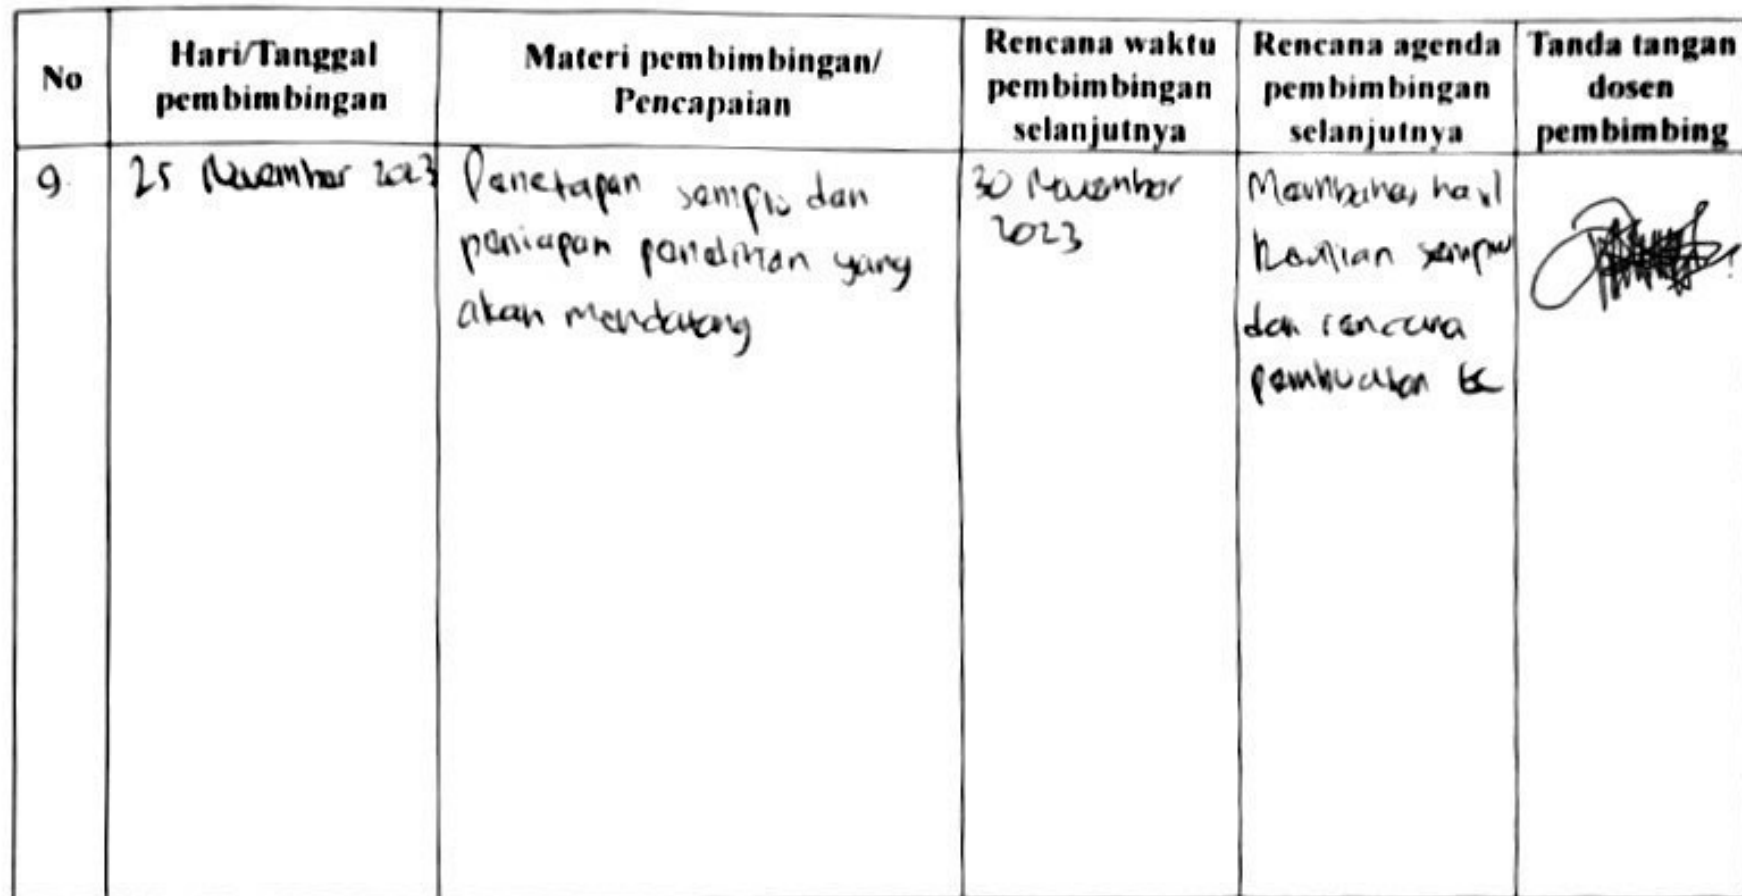 No
Hari/Tanggal
pembimbingan
Materi pembimbingan/
Pencapaian
Rencana waktu
pembimbingan
selanjutnya
Rencana agenda
pembimbingan
selanjutnya
Tanda tangan
dosen
pembimbing
9.
25 November 2023
Penetapan sampel dan
persiapan penelitian yang
akan mendatang
30 November
2023
Membahas hasil
sampel
dan rencana
pembuatan